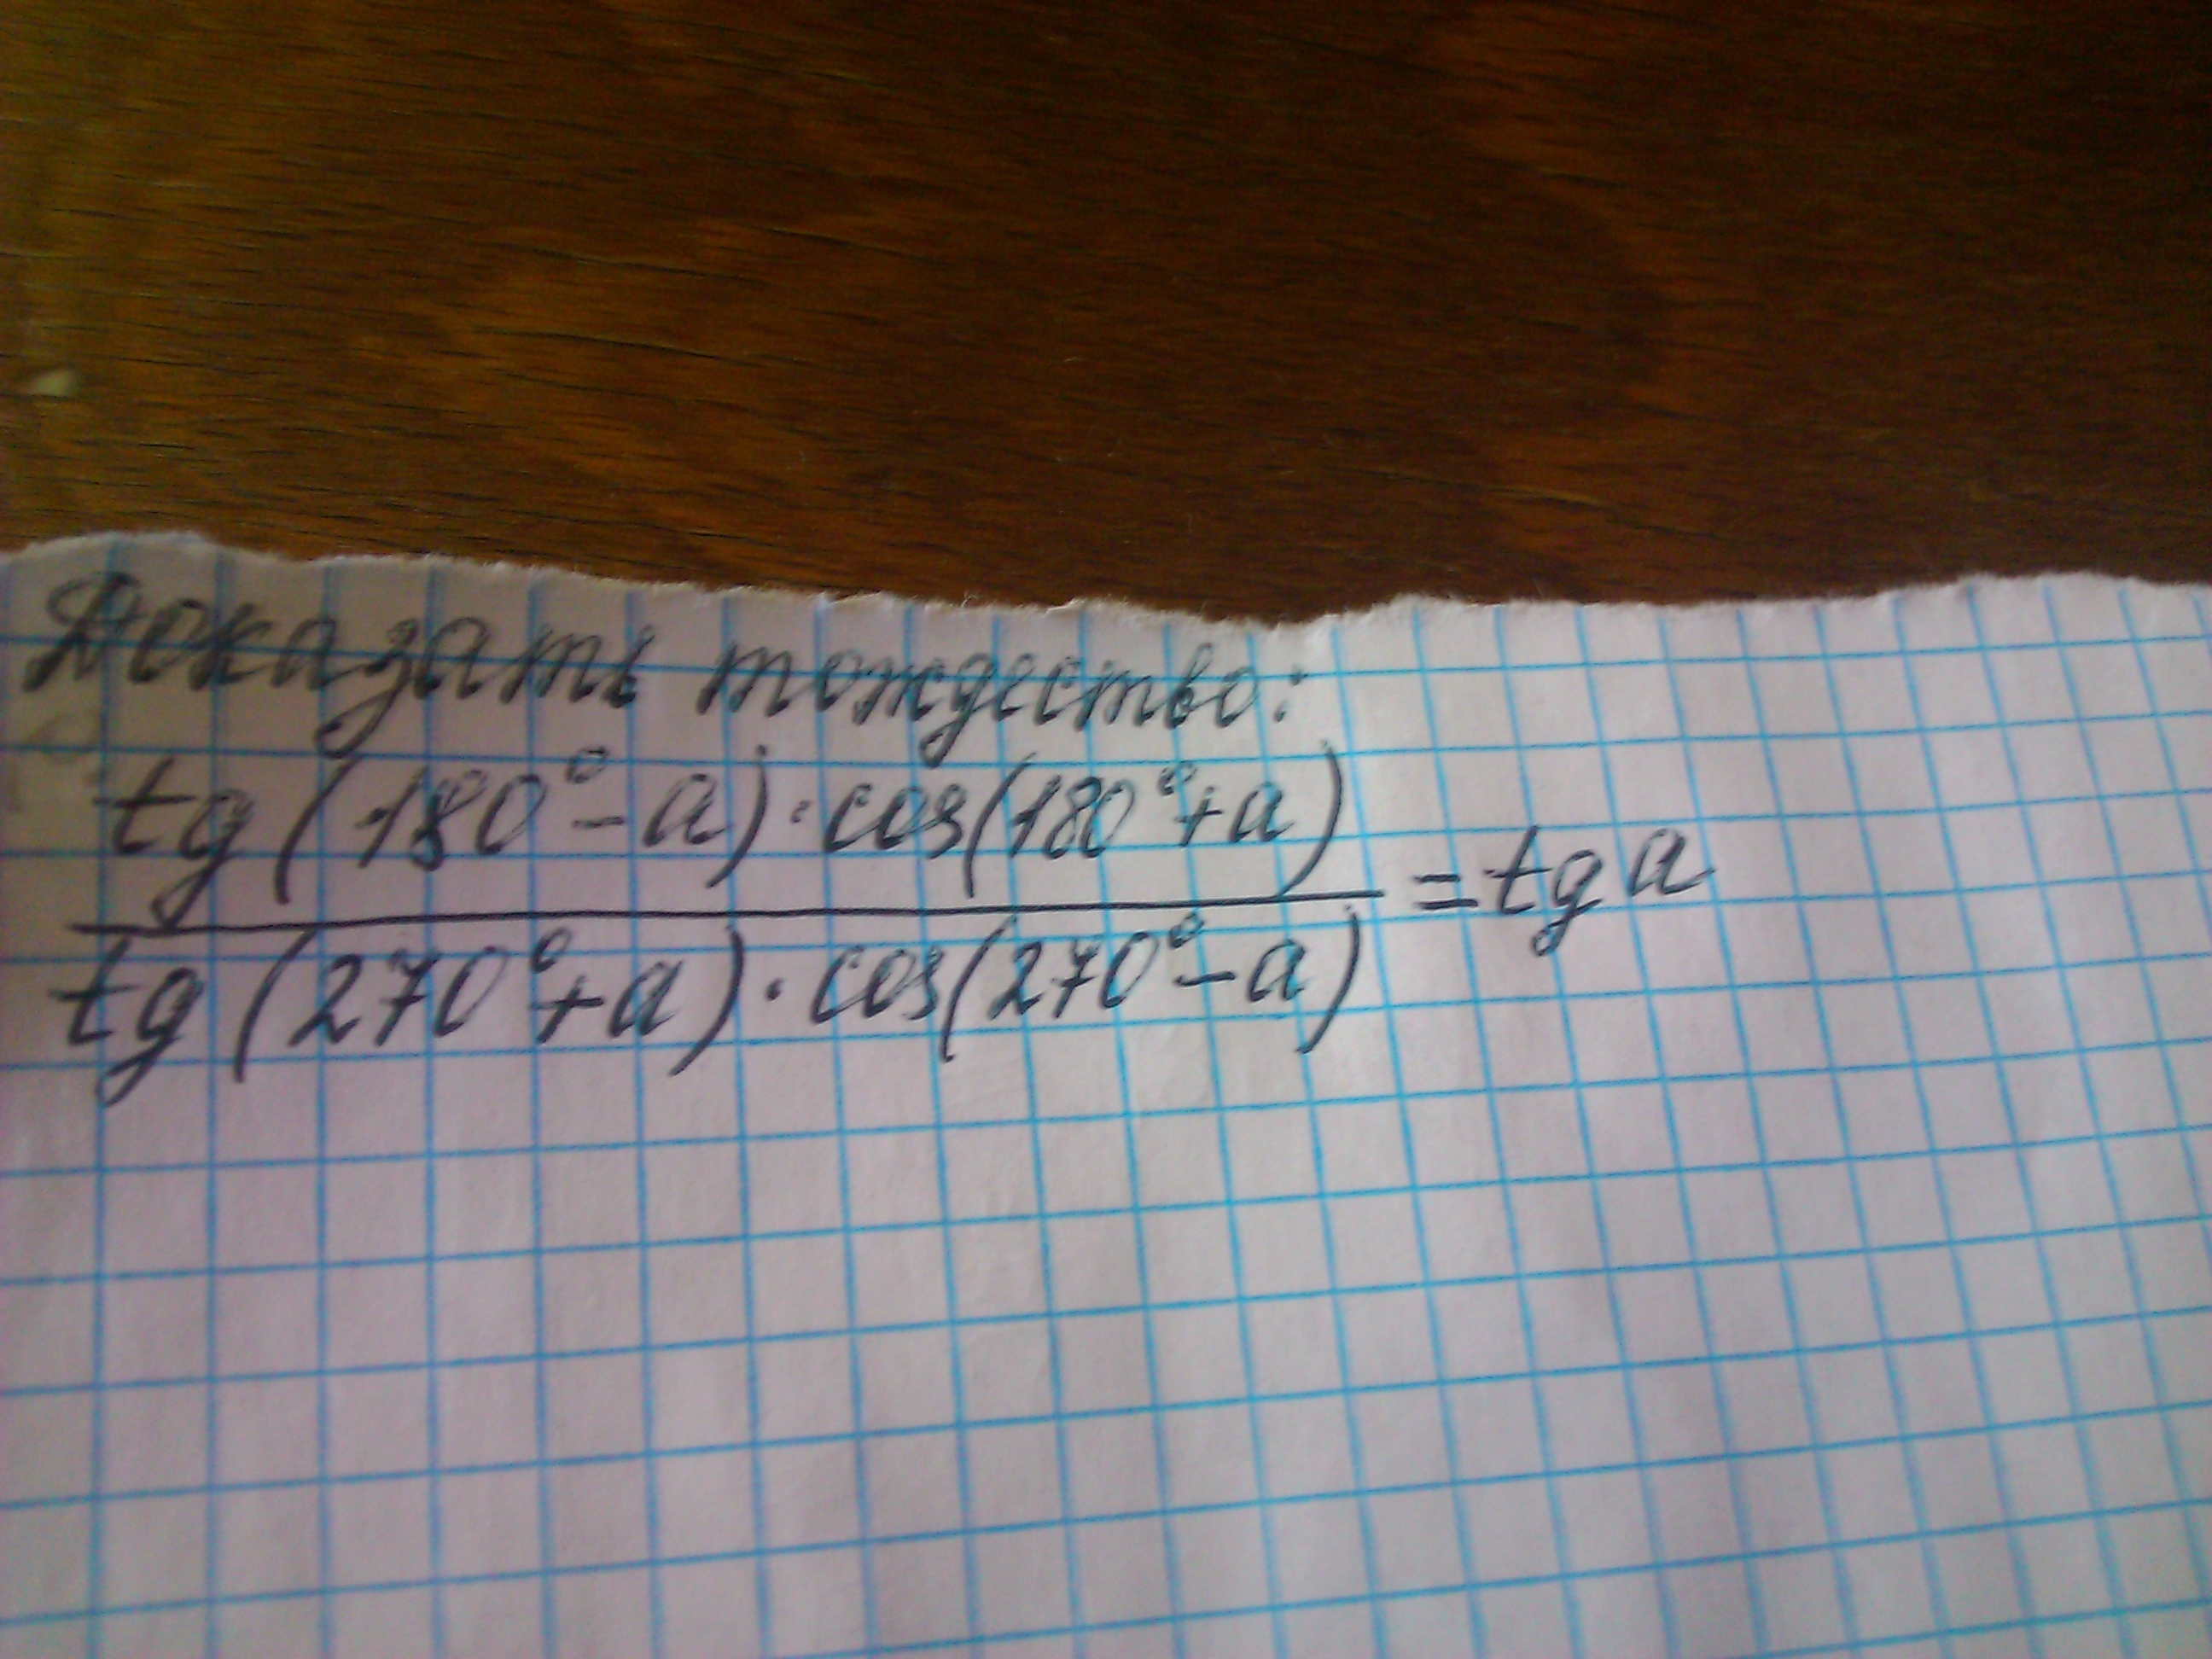 Доказать тождество:
tg(180°-a)·cos(180°+a)
= tg a
tg(270°+a)·cos(270°-a)